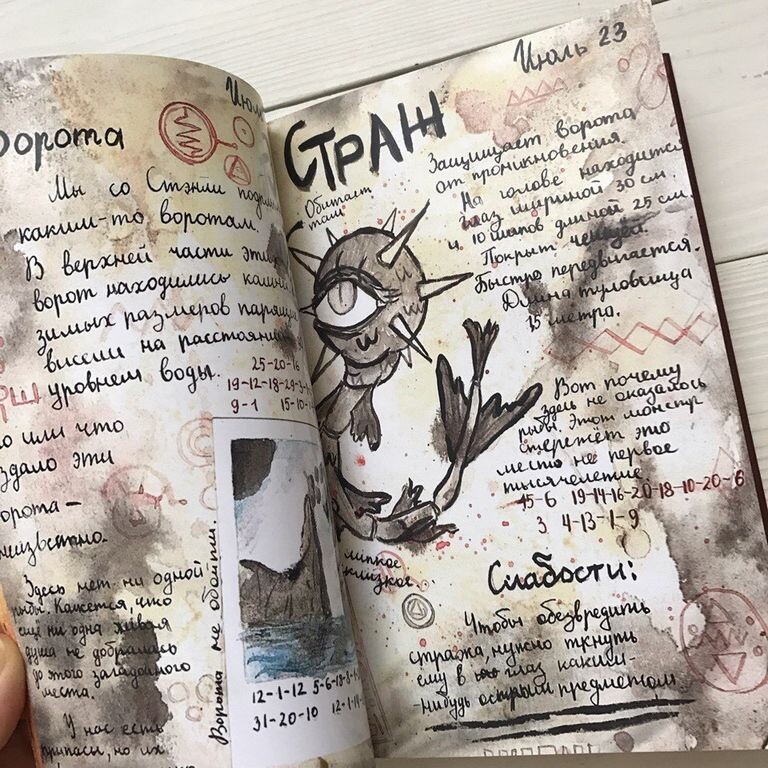 Июль
Ворота
Мы со Стэнли
каким-то воротам.
В верхней части этих
ворот находились
зимых размеров
висели на расстоянии
уровнем воды.
25-20-16
9-1
или что
эти
неизвестно.
Здесь нет ни одной
рыбы. Кажется, что
ещё ни одна живая
душа не добралась
до этого загадочного
места.
У нас есть
припасы, но их
Ворота не обойти.
12-1-12
31-20-10
Июль 23
СТРАЖ
Обитает
там
Защищает ворота
от проникновения
На голове находится
глаз шириной 30 см.
и 10 шипов длиной 25 см.
Покрыт чешуёй.
Быстро передвигается.
Длина туловища
15 метро.
Вот почему
здесь не оказалось
рыбы. Этот монстр
стережёт это
место не первое
тысячелетие
15-6 19-14-16-20-18-10-20-6
3 4-13-1-9
липкое
склизкое
Слабости:
Чтобы обезвредить
стража, нужно ткнуть
ему в глаз каким-
-нибудь острым предметом